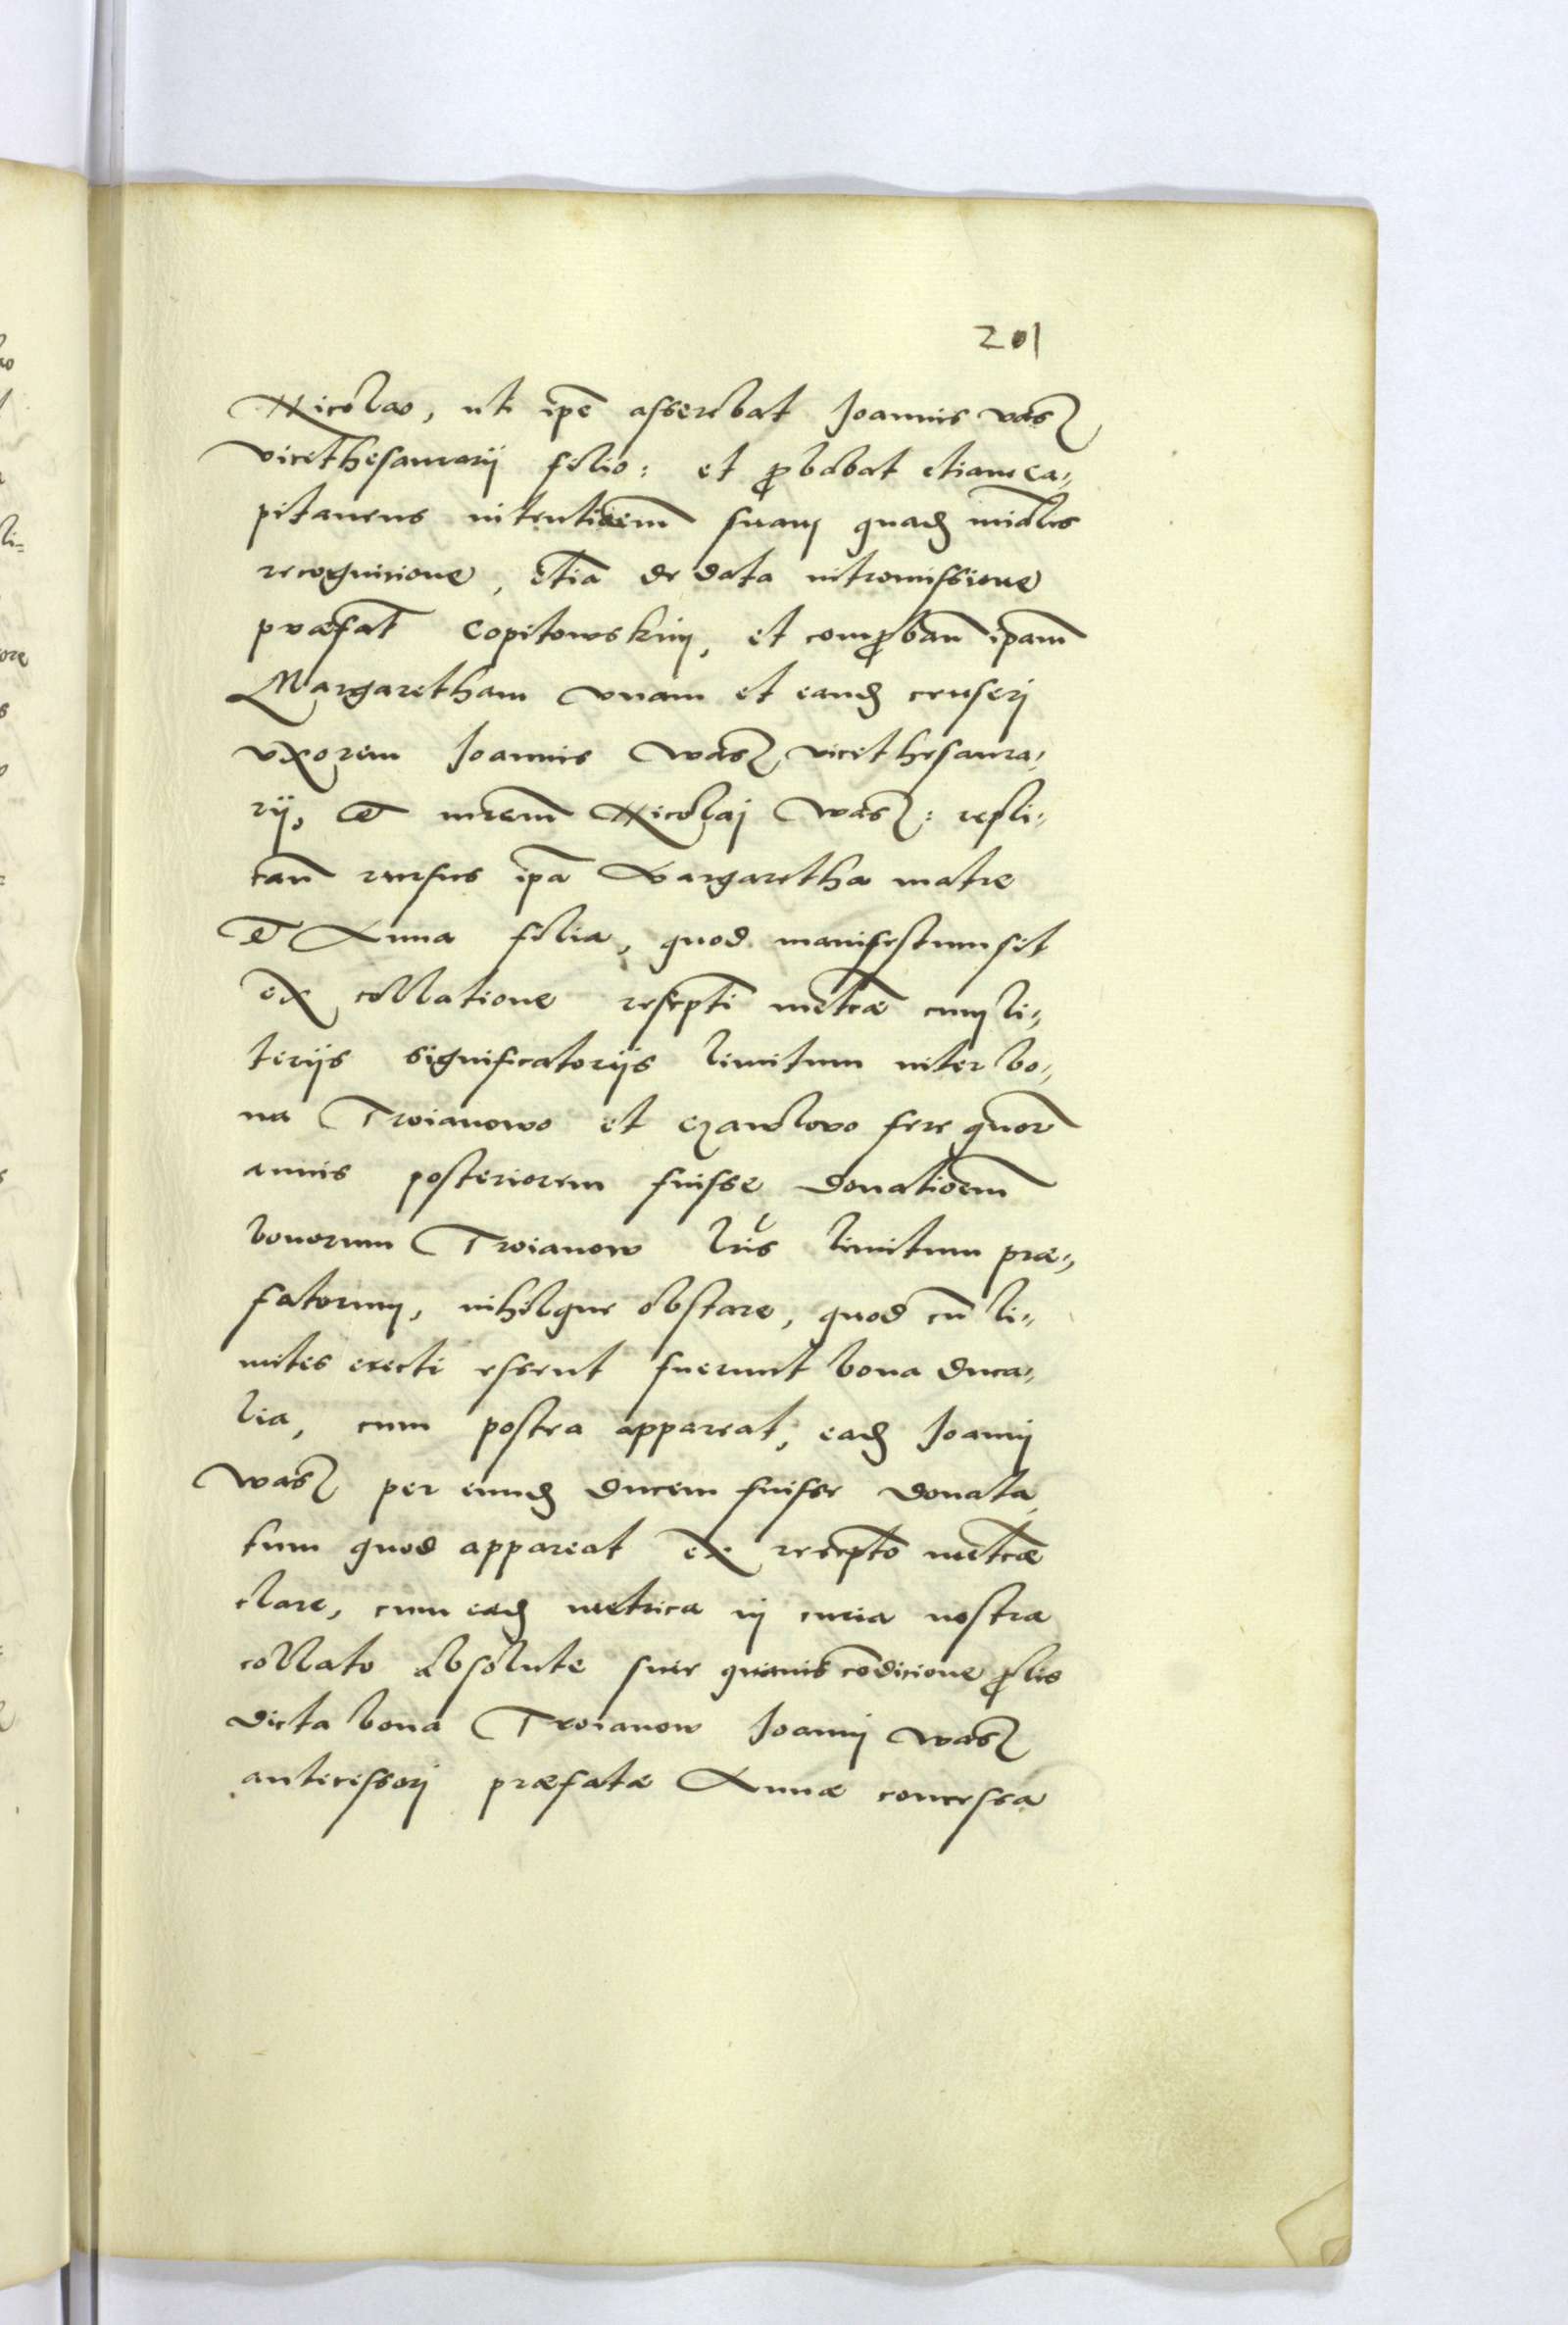 201
Nicolao, uti ip̄e asserebat Joannis Vas
vicethesaurarij filio: et ꝓbabat etiam ca⸗
pitaneus intentioem̄ suam quadȝ
recognicione, etiā de data intromissione
præfat̄ Copitowskim, et comꝓban̄ ip̄am
Margaretham vnam et eandȝ censerj
vxorem Joannis Was vicethesaura⸗
rij, et mr̄em̄ Nicolaj Was: repli⸗
can̄ rursus ip̄a Margaretha matre
et Anna filia, quod manifestum sit
ex collatione rescpti metcæ cum li⸗
terijs significatorijs limitum inter bo⸗
na Troianowo et Czawlowo fere quor̄
annis posteriorem fuisse donatioem̄
bonorum Troianow lr̄is limitum præ⸗
fatorum, nihilque obstare, quod cū li⸗
mites erecti essent fuerunt bona duca⸗
lia, cum postea appareat, eadȝ Joannj
Was per eundȝ ducem fuisse donata,
tum quod appareat ex rescpto metcæ
clare, cum eadȝ metrica in curia nostra
collato absolute sine quauis cōdicione ꝓlis
dicta bona Troianow Joannj Was
antecessorj præfatæ Annæ concessa